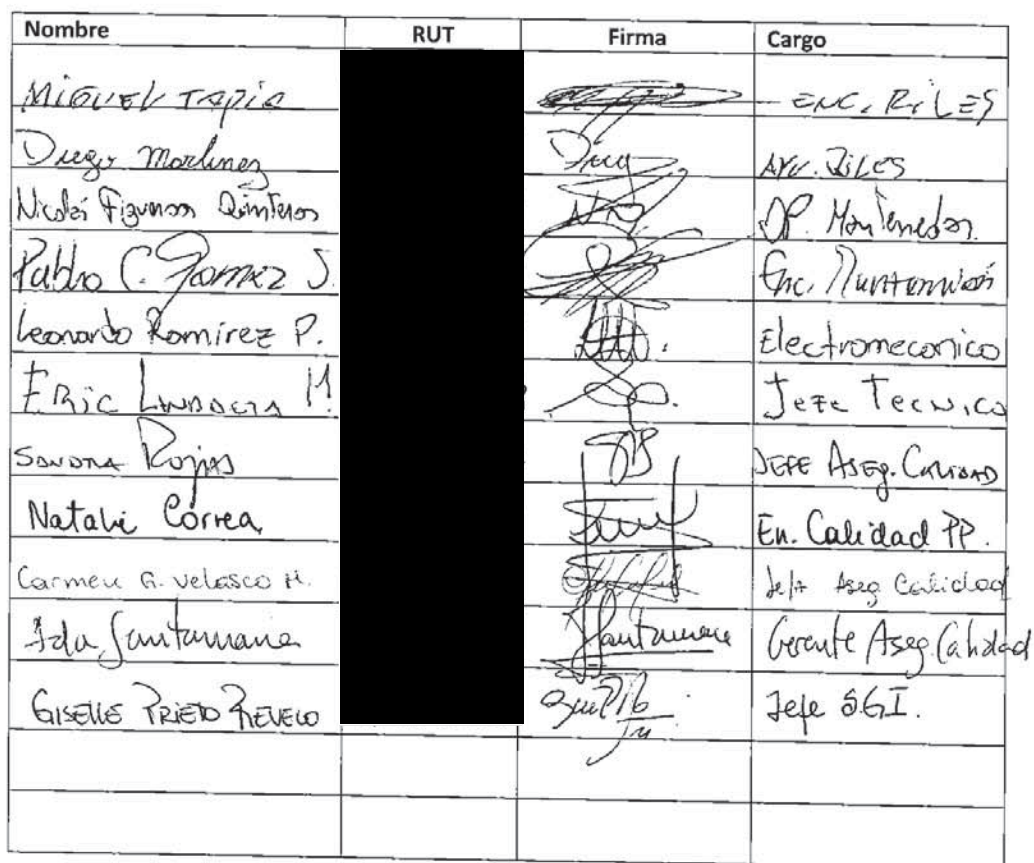 Nombre RUT Firma Cargo
MIGUEL TAPIA ENC. RILES
Diego Martinez AYU. RILES
Nicolás Figueroa Quinteros OP. Mantenedor
Pablo C. Gomez S. Enc. Mantención
Leonardo Ramírez P. Electromecanico
ERic M. Jefe Tecnico
SANDRA Rojas JEFE ASEG. CALIDAD
Natalie Correa En. Calidad PP.
Carmen G. Velasco H. Jefa Aseg Calidad
Ada Santamaria Santamaria Gerente Aseg. Calidad
GISELLE PRIETO Jefe SGI.